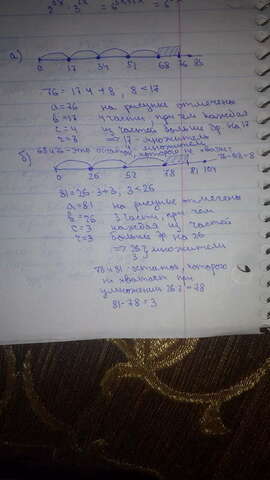 а)
0 17 34 51 68 76 85
76 = 17·4 + 8, 8 < 17
а = 76 на рисунке отмечены
в = 17 4 части, при чем каждая
с = 4 из частей больше др на 17
r = 8 => 17 - множители
68 и 76 - это остаток, которого не хватает
б) 76-68=8
0 26 52 78 81 104
81 = 26·3 + 3, 3 < 26
а = 81 на рисунке отмечены
в = 26 3 части, при чем
с = 3 каждая из частей
r = 3 больше др на 26
=> 26 и 3 множители
78 и 81 - остаток, которого
не хватает при
умножении 26·3 = 78
81 - 78 = 3